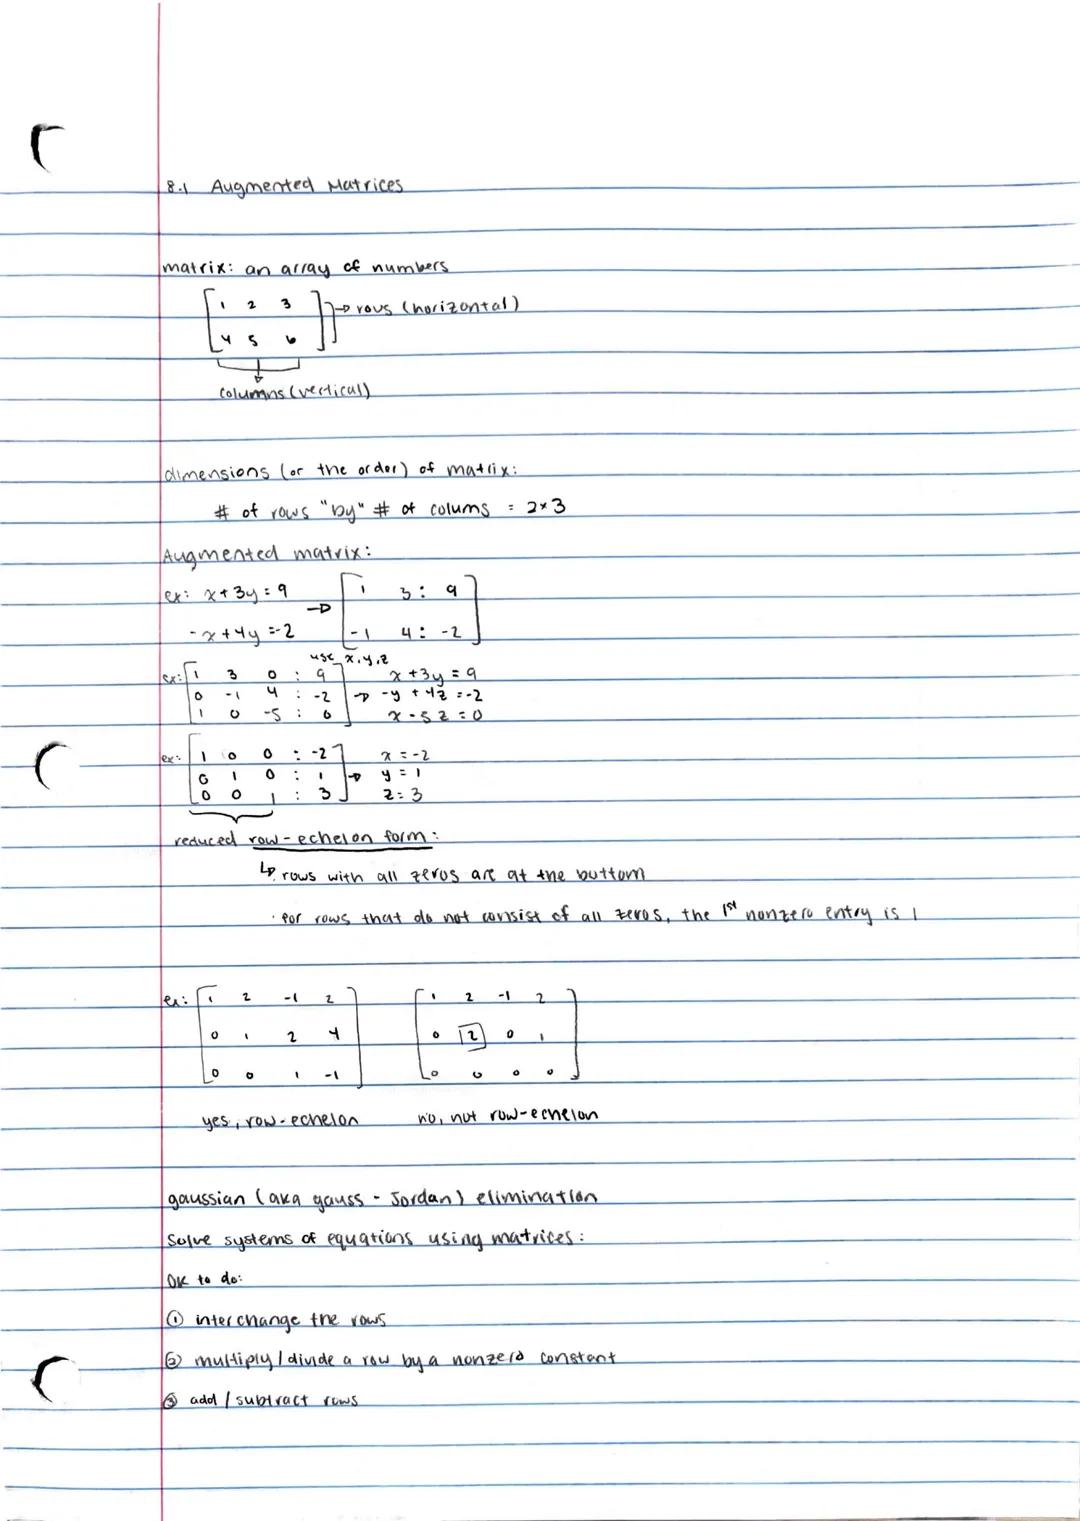 8.1 Augmented Matrices
matrix: an array of numbers
1 2 3 → rows (horizontal)
4 5 6
columns (vertical)
dimensions (or the order) of matrix:
# of rows "by" # of colums = 2x3
Augmented matrix:
ex: x+3y=9 → 1 3 : 9
-x+4y=-2 -1 4 : -2
use x,y,z
ex: 1 3 0 : 9 x+3y=9
0 -1 4 : -2 → -y+4z=-2
1 0 -5 : 0 x-5z=0
ex: 1 0 0 : -2 x=-2
0 1 0 : 1 → y=1
0 0 1 : 3 z=3
reduced row-echelon form:
↳ · rows with all zeros are at the buttom
· for rows that do not consist of all zeros, the 1st nonzero entry is 1
ex: 1 2 -1 2 1 2 -1 2
0 1 2 4 0 2 0 1
0 0 1 -1 0 0 0 0
yes, row-echelon no, not row-echelon
gaussian (aka gauss-Jordan) elimination
solve systems of equations using matrices:
OK to do:
① interchange the rows
② multiply/divide a row by a nonzero constant
③ add/subtract rows